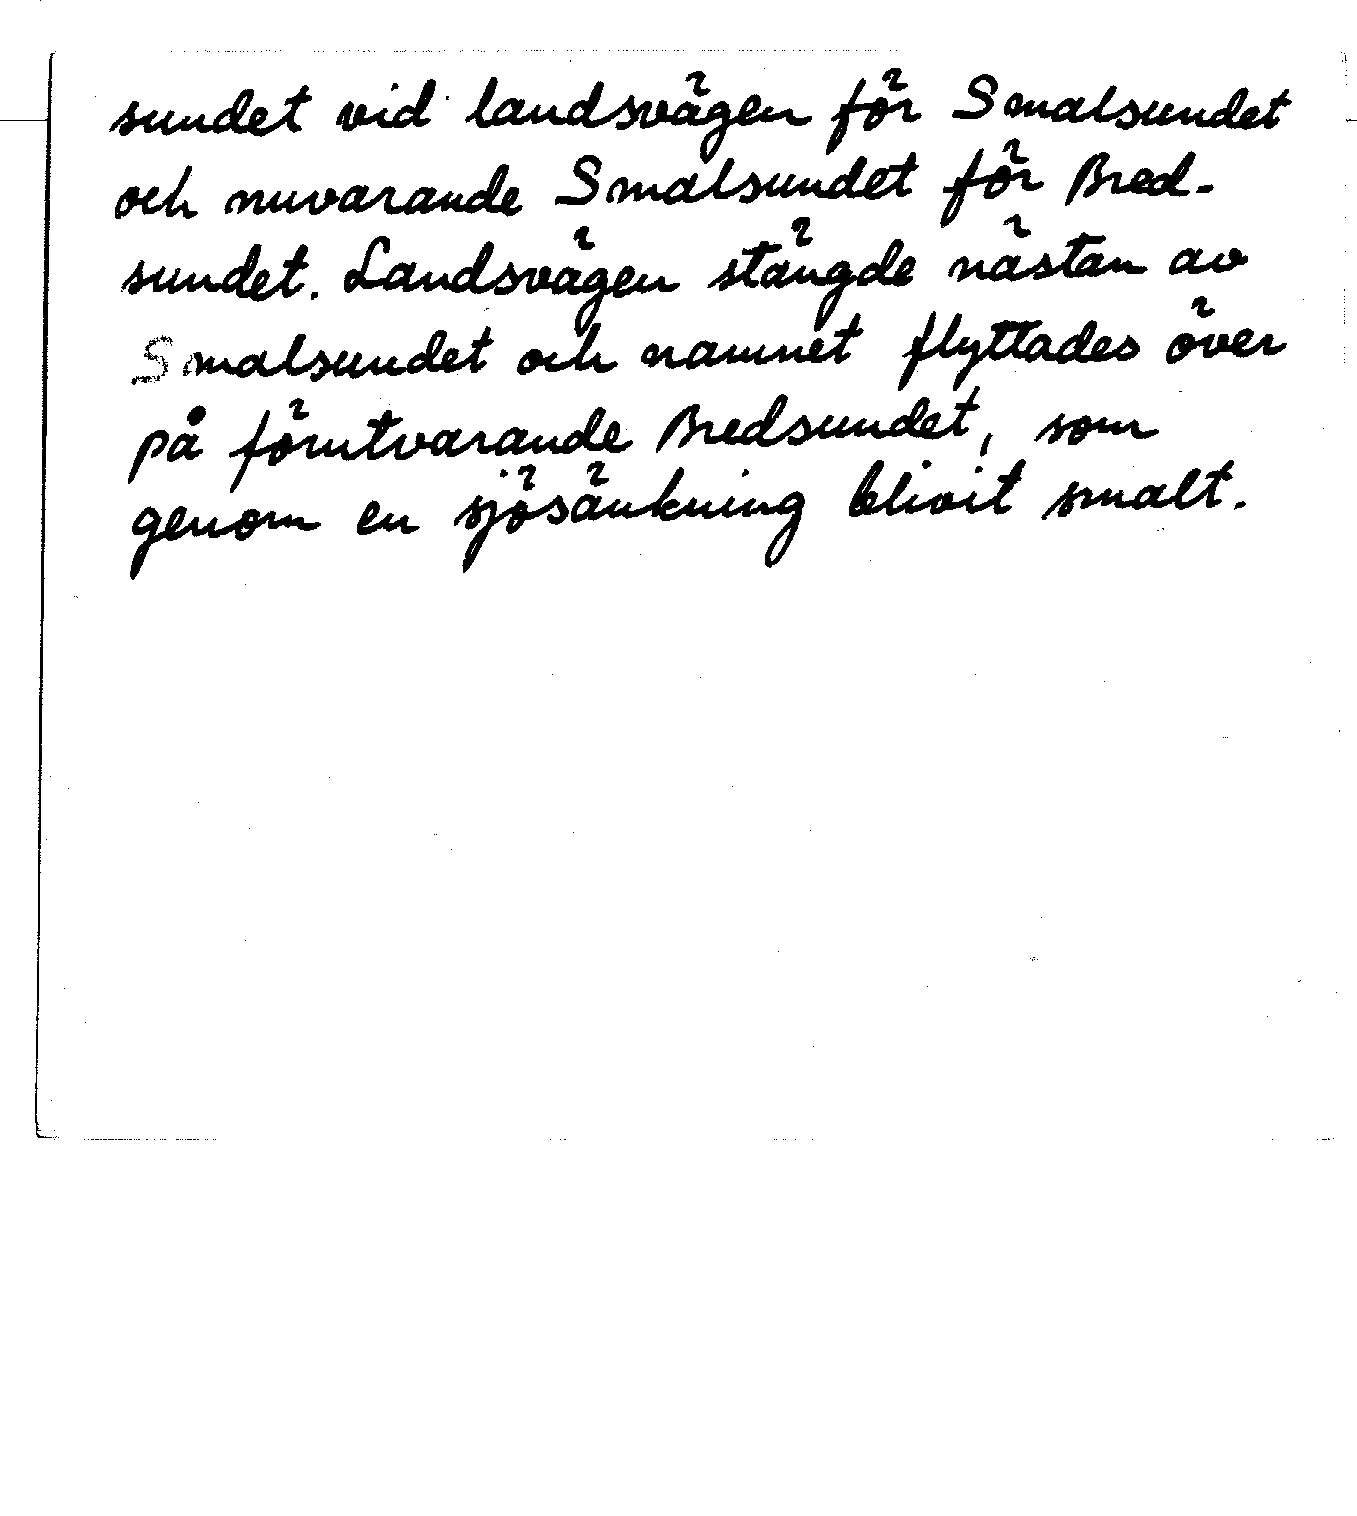 sundet vid landsvägen för Smalsundet
och nuvarande Smalsundet för Bred-
sundet. Landsvägen stängde nästan av
Smalsundet och namnet flyttades över
på förutvarande Bredsundet, som
genom en sjösänkning blivit smalt.